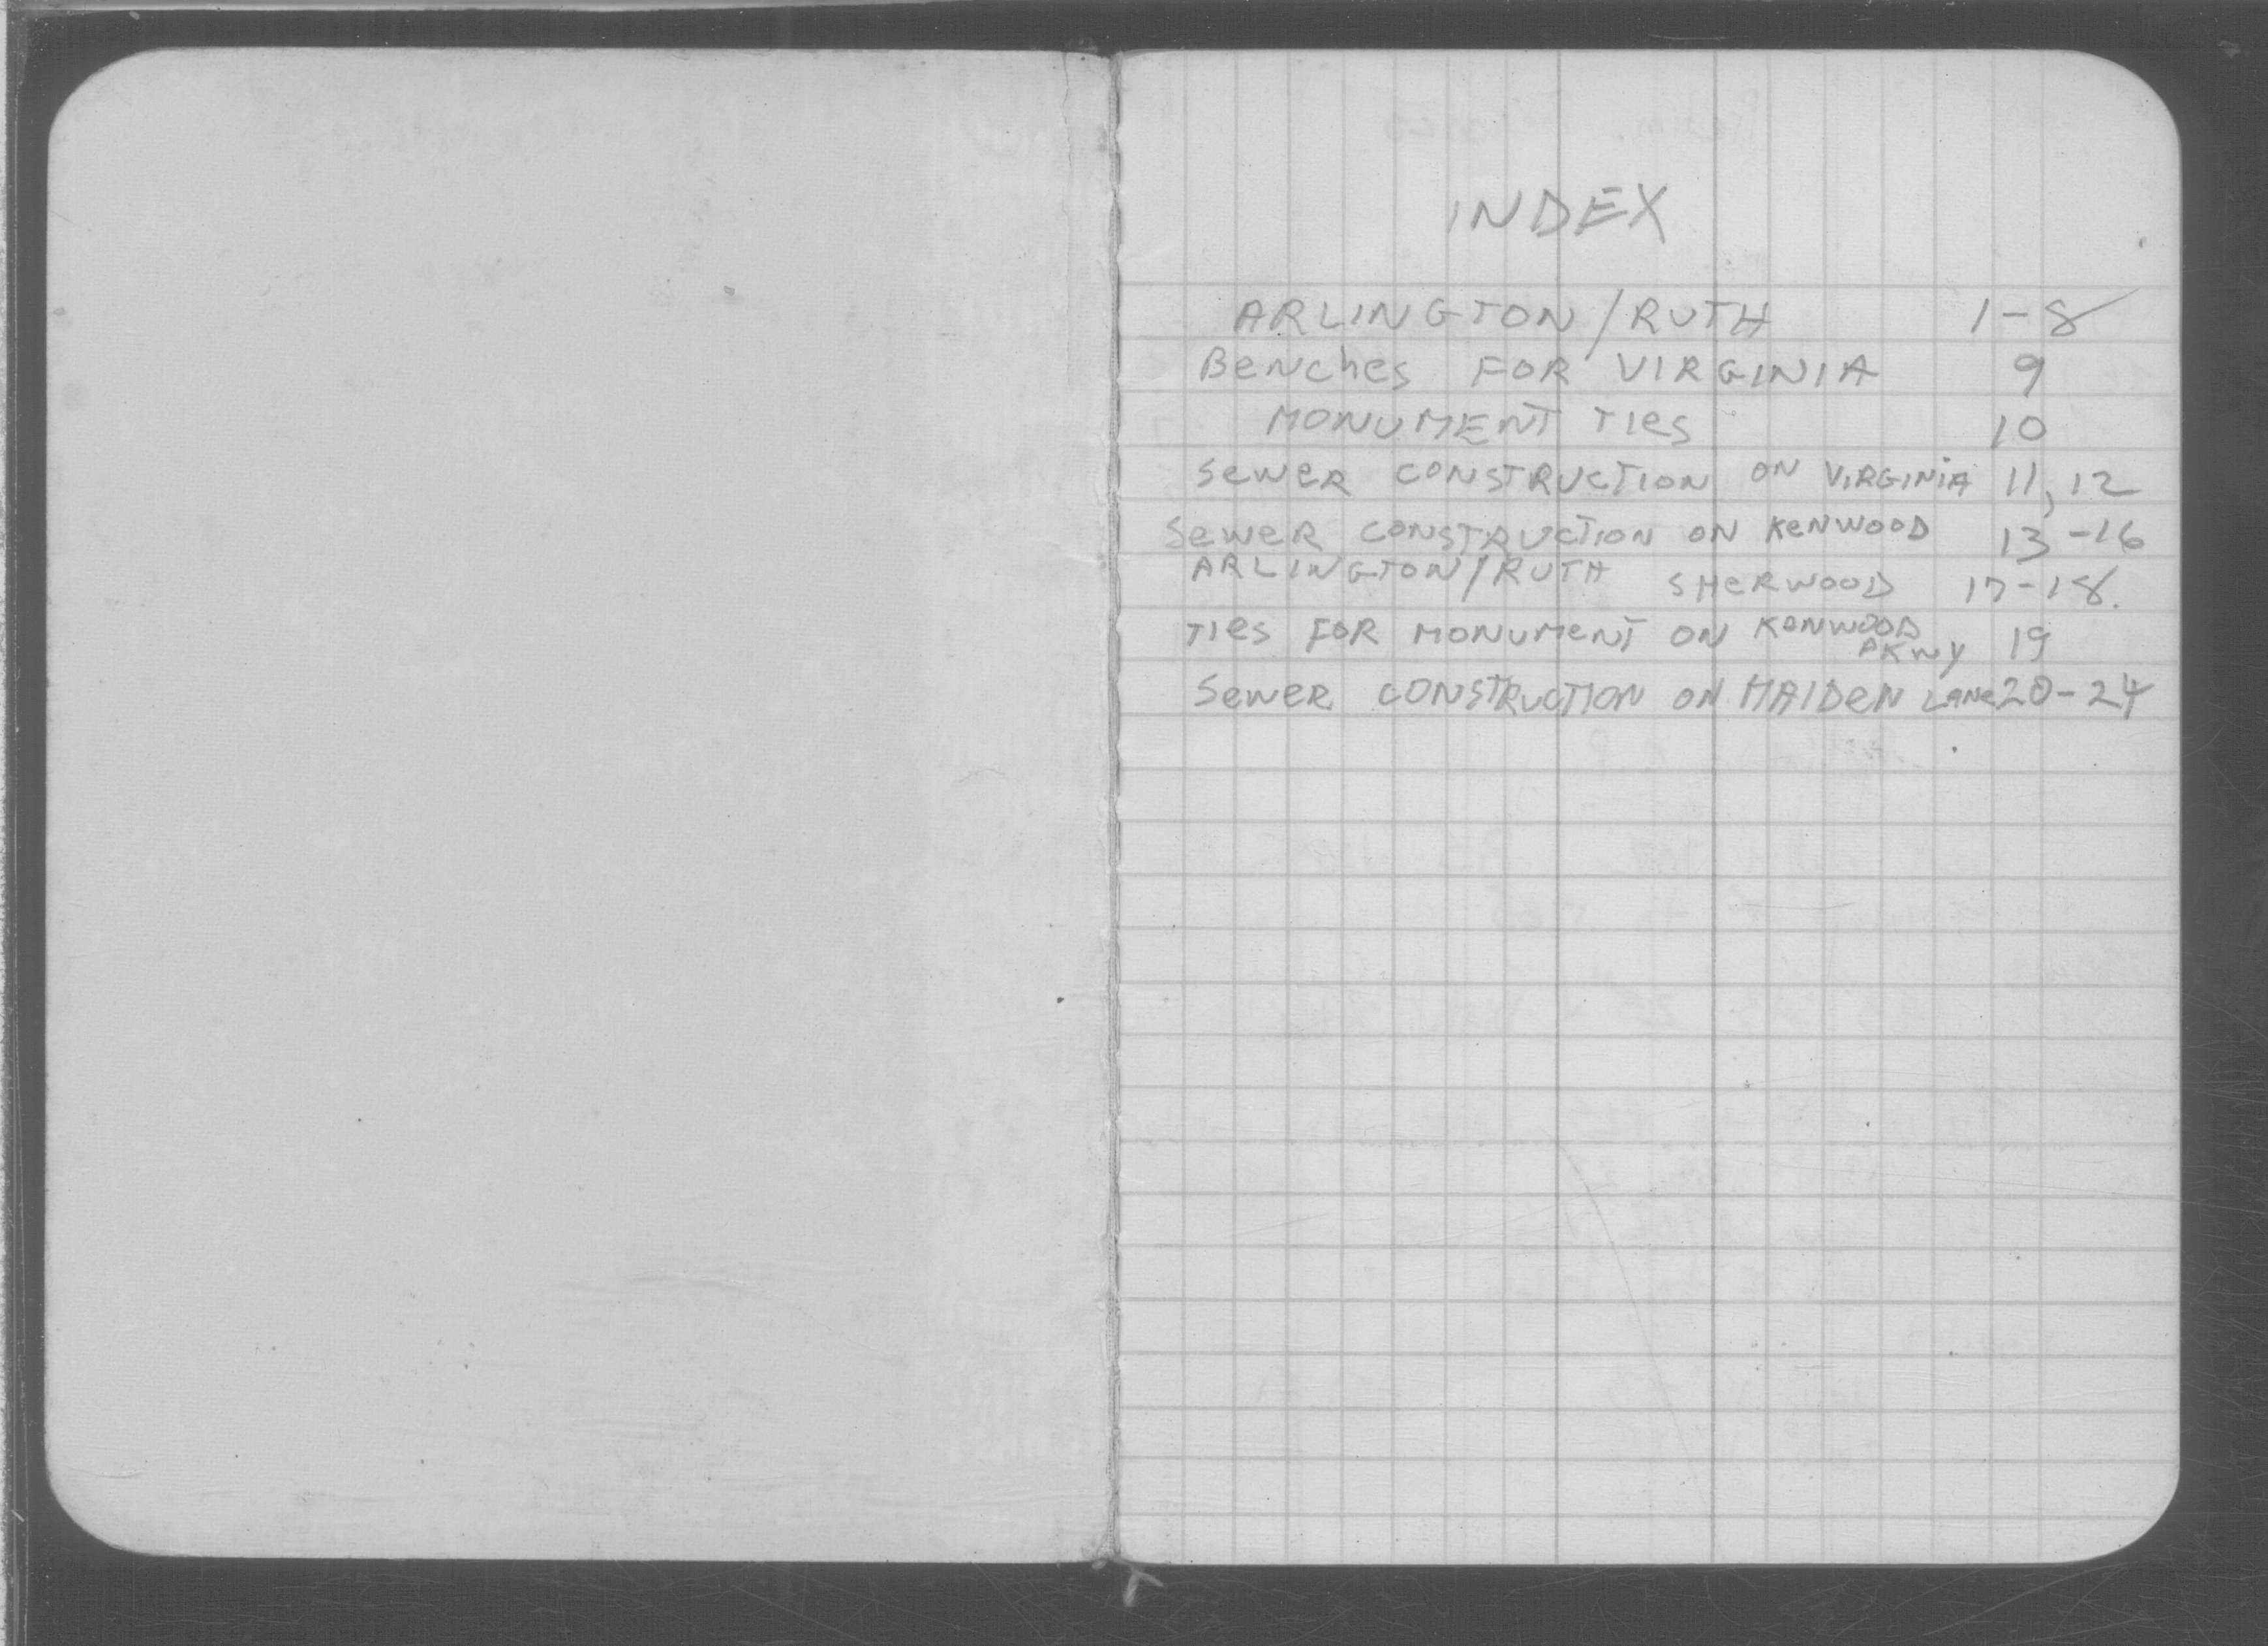 INDEX
ARLINGTON/RUTH 1-8
Benches FOR VIRGINIA 9
MONUMENT TIes 10
SeweR CONSTRUCTION ON VIRGINIA 11,12
SeweR CONSTRUCTION ON KeNWOOD 13-16
ARLINGTON/RUTH SHeRWOOD 17-18.
TIes FOR MONUMeNT ON KeNWOOD 19
PKWY
SeweR CONSTRUCTION ON MAIDeN LANe 20-24